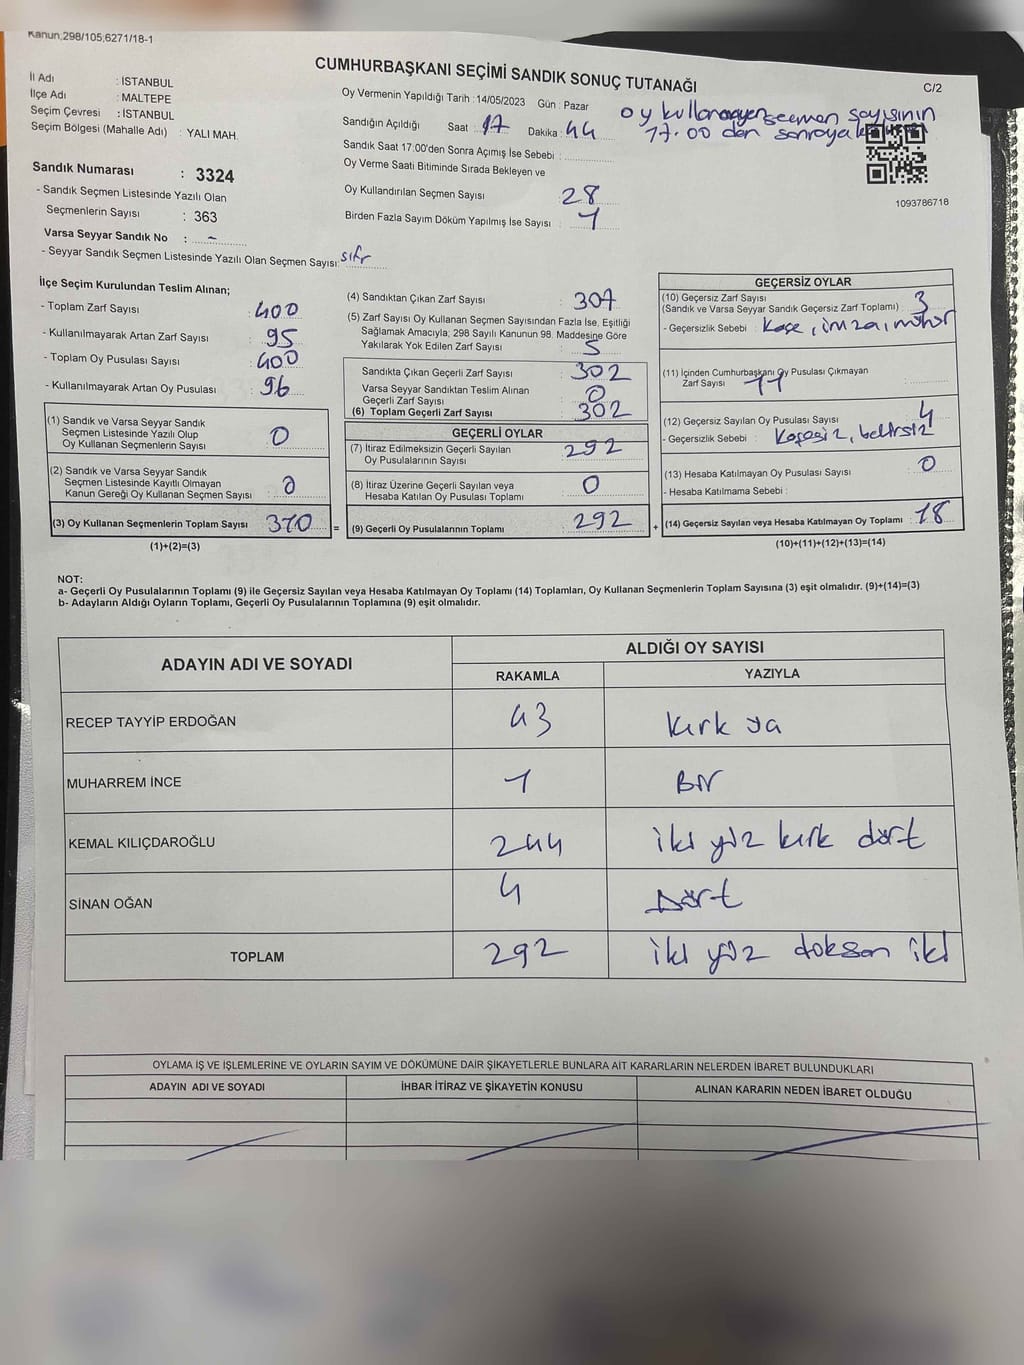 Kanun;298/105;6271/18-1
CUMHURBAŞKANI SEÇİMİ SANDIK SONUÇ TUTANAĞI
C/2
İl Adı : İSTANBUL
İlçe Adı : MALTEPE
Seçim Çevresi : İSTANBUL
Seçim Bölgesi (Mahalle Adı) : YALI MAH.
Oy Vermenin Yapıldığı Tarih : 14/05/2023 Gün : Pazar
Sandığın Açıldığı Saat 17 Dakika : 44
seçmen sayısının
17.00 den sonraya
Sandık Saat 17:00'den Sonra Açımış İse Sebebi :
Oy Verme Saati Bitiminde Sırada Bekleyen ve
Oy Kullandırılan Seçmen Sayısı 28
Birden Fazla Sayım Döküm Yapılmış İse Sayısı 1
1093786718
Sandık Numarası : 3324
- Sandık Seçmen Listesinde Yazılı Olan
Seçmenlerin Sayısı : 363
Varsa Seyyar Sandık No : -
- Seyyar Sandık Seçmen Listesinde Yazılı Olan Seçmen Sayısı: sıfır
İlçe Seçim Kurulundan Teslim Alınan;
- Toplam Zarf Sayısı : 400
- Kullanılmayarak Artan Zarf Sayısı : 95
- Toplam Oy Pusulası Sayısı : 400
- Kullanılmayarak Artan Oy Pusulası : 96
(1) Sandık ve Varsa Seyyar Sandık
Seçmen Listesinde Yazılı Olup
Oy Kullanan Seçmenlerin Sayısı : 0
(2) Sandık ve Varsa Seyyar Sandık
Seçmen Listesinde Kayıtlı Olmayan
Kanun Gereği Oy Kullanan Seçmen Sayısı : 0
(3) Oy Kullanan Seçmenlerin Toplam Sayısı 310 =
(1)+(2)=(3)
(4) Sandıktan Çıkan Zarf Sayısı : 307
(5) Zarf Sayısı Oy Kullanan Seçmen Sayısından Fazla İse, Eşitliği
Sağlamak Amacıyla; 298 Sayılı Kanunun 98. Maddesine Göre
Yakılarak Yok Edilen Zarf Sayısı : 5
Sandıkta Çıkan Geçerli Zarf Sayısı : 302
Varsa Seyyar Sandıktan Teslim Alınan
Geçerli Zarf Sayısı : 0
(6) Toplam Geçerli Zarf Sayısı : 302
GEÇERLİ OYLAR
(7) İtiraz Edilmeksizin Geçerli Sayılan
Oy Pusulalarının Sayısı : 292
(8) İtiraz Üzerine Geçerli Sayılan veya
Hesaba Katılan Oy Pusulası Toplamı : 0
(9) Geçerli Oy Pusulalarının Toplamı : 292 +
GEÇERSİZ OYLAR
(10) Geçersiz Zarf Sayısı
(Sandık ve Varsa Seyyar Sandık Geçersiz Zarf Toplamı) : 3
- Geçersizlik Sebebi : Kaşe, imza, mühür
(11) İçinden Cumhurbaşkanı Oy Pusulası Çıkmayan
Zarf Sayısı 11 :
(12) Geçersiz Sayılan Oy Pusulası Sayısı : 4
- Geçersizlik Sebebi : Kaşesiz, belirsiz
(13) Hesaba Katılmayan Oy Pusulası Sayısı : 0
- Hesaba Katılmama Sebebi :
(14) Geçersiz Sayılan veya Hesaba Katılmayan Oy Toplamı : 18
(10)+(11)+(12)+(13)=(14)
NOT:
a- Geçerli Oy Pusulalarının Toplamı (9) ile Geçersiz Sayılan veya Hesaba Katılmayan Oy Toplamı (14) Toplamları, Oy Kullanan Seçmenlerin Toplam Sayısına (3) eşit olmalıdır. (9)+(14)=(3)
b- Adayların Aldığı Oyların Toplamı, Geçerli Oy Pusulalarının Toplamına (9) eşit olmalıdır.
ADAYIN ADI VE SOYADI
ALDIĞI OY SAYISI
RAKAMLA YAZIYLA
RECEP TAYYİP ERDOĞAN 43 kırk
MUHARREM İNCE 1 Bir
KEMAL KILIÇDAROĞLU 244 iki yüz kırk dört
SİNAN OĞAN 4 Dört
TOPLAM 292 iki yüz doksan iki
OYLAMA İŞ VE İŞLEMLERİNE VE OYLARIN SAYIM VE DÖKÜMÜNE DAİR ŞİKAYETLERLE BUNLARA AİT KARARLARIN NELERDEN İBARET BULUNDUKLARI
ADAYIN ADI VE SOYADI İHBAR İTİRAZ VE ŞİKAYETİN KONUSU ALINAN KARARIN NEDEN İBARET OLDUĞU